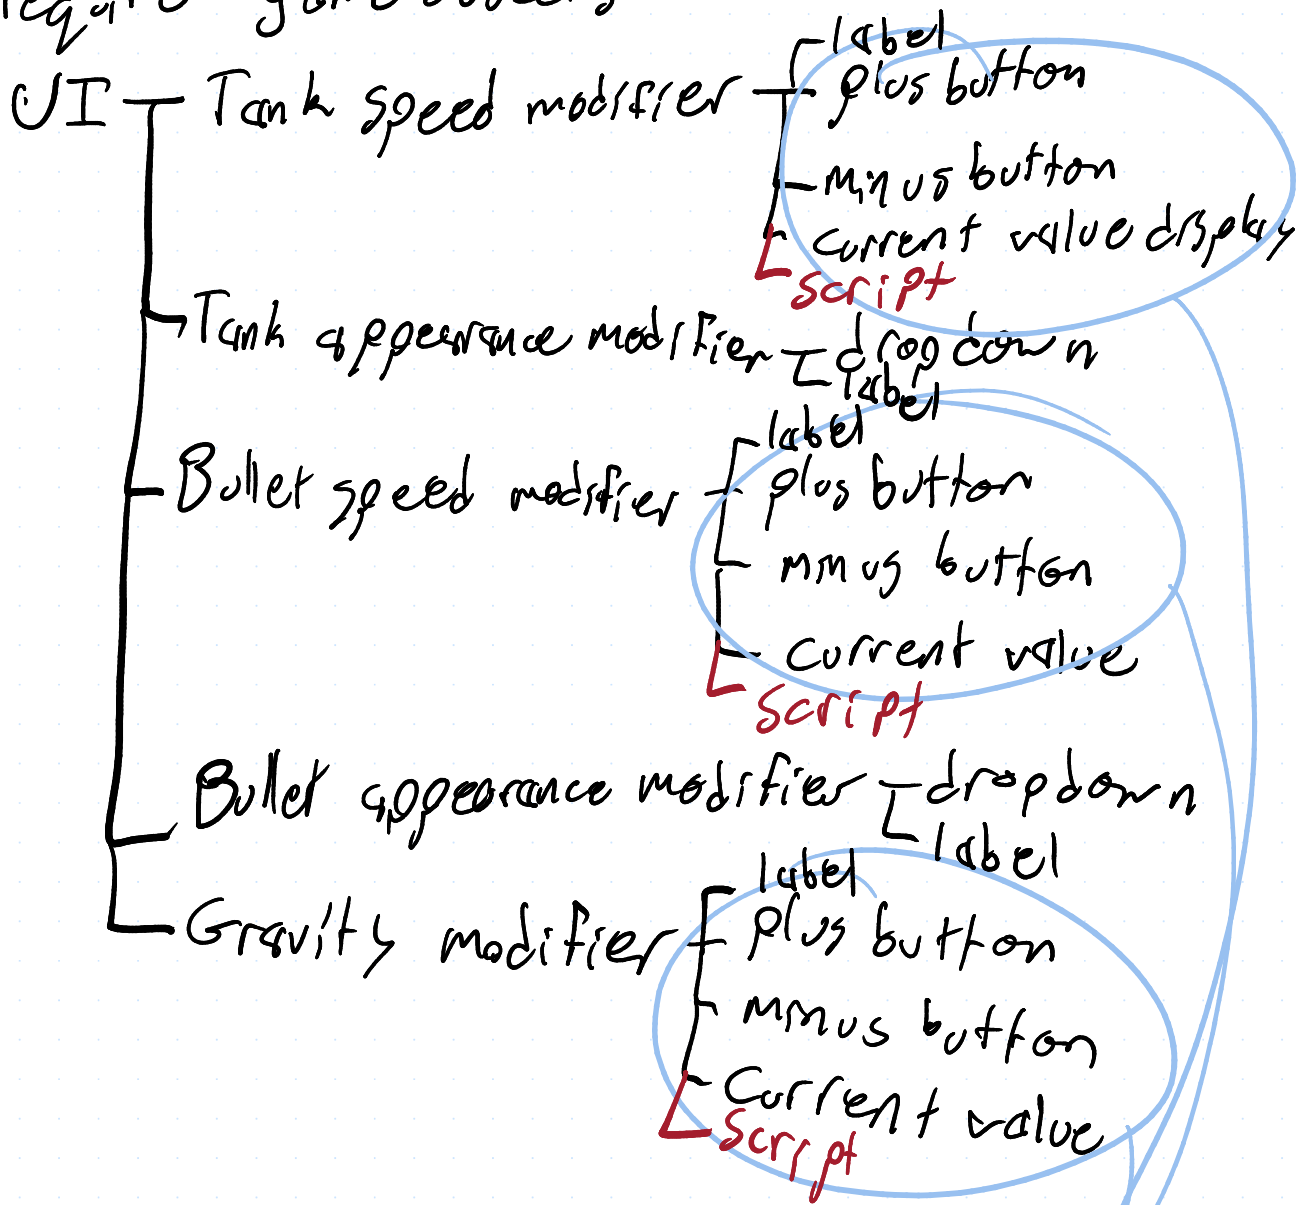 require
UI Tank speed modifier
label
plus button
minus button
current value display
script
Tank appearance modifier
dropdown
label
Bullet speed modifier
label
plus button
minus button
current value
script
Bullet appearance modifier
dropdown
label
Gravity modifier
label
plus button
minus button
current value
script